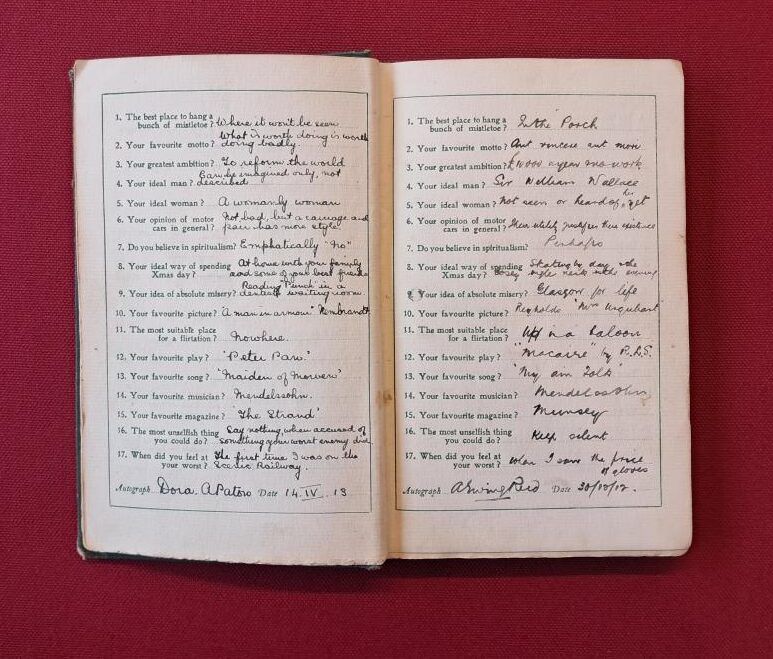 1. The best place to hang a
bunch of mistletoe? Where it won't be seen
What is worth doing is worth
2. Your favourite motto? doing badly.
3. Your greatest ambition? To reform the world
Can be imagined only, not
4. Your ideal man? described
5. Your ideal woman? A womanly woman
6. Your opinion of motor Not bad, but a carriage and
cars in general? pair has more style
7. Do you believe in spiritualism? Emphatically "no"
8. Your ideal way of spending At home with your family
Xmas day? and some of your best friends
Reading "Punch" in a
9. Your idea of absolute misery? dentist's waiting room
10. Your favourite picture? "A man in armour" Rembrandt
11. The most suitable place
for a flirtation? Nowhere.
12. Your favourite play? 'Peter Pan.'
13. Your favourite song? 'Maiden of Morven'
14. Your favourite musician? Mendelssohn.
15. Your favourite magazine? 'The Strand'
16. The most unselfish thing Say nothing, when accused of
you could do? something your worst enemy did
17. When did you feel at The first time I was on the
your worst? Scenic Railway.
Autograph Dora. A Paton Date 14. IV. 13
1. The best place to hang a
bunch of mistletoe? In the Porch
2. Your favourite motto? Aut vincere aut mori
3. Your greatest ambition? £10000 a year & no work
4. Your ideal man? Sir William Wallace
5. Your ideal woman? Not seen or heard of her yet
6. Your opinion of motor
cars in general? Their utility justifies their existence
7. Do you believe in spiritualism? Perhaps
8. Your ideal way of spending Skating by day
Xmas day? in the evening
9. Your idea of absolute misery? Glasgow for life
10. Your favourite picture? Reynolds "Mrs Urquhart"
11. The most suitable place
for a flirtation? Up in a Baloon
12. Your favourite play? "Macaire" by R.L.S.
13. Your favourite song? 'My ain Folk'
14. Your favourite musician? Mendelssohn
15. Your favourite magazine? Munsey
16. The most unselfish thing
you could do? Keep silent
17. When did you feel at
your worst? When I saw the price
of gloves
Autograph A Ewing Reid Date 30/12/12.